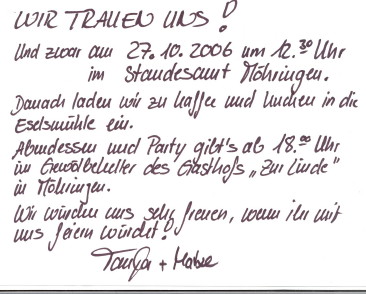 WIR TRAUEN UNS!
Und zwar am 27.10.2006 um 12.30 Uhr
im Standesamt Möhringen.
Danach laden wir zu Kaffee und Kuchen in die
Eselsmühle ein.
Abendessen und Party gibt's ab 18.00 Uhr
im Gewölbekeller des Gasthofs „Zur Linde"
in Möhringen.
Wir würden uns sehr freuen, wenn ihr mit
uns feiern würdet!
Tanja +